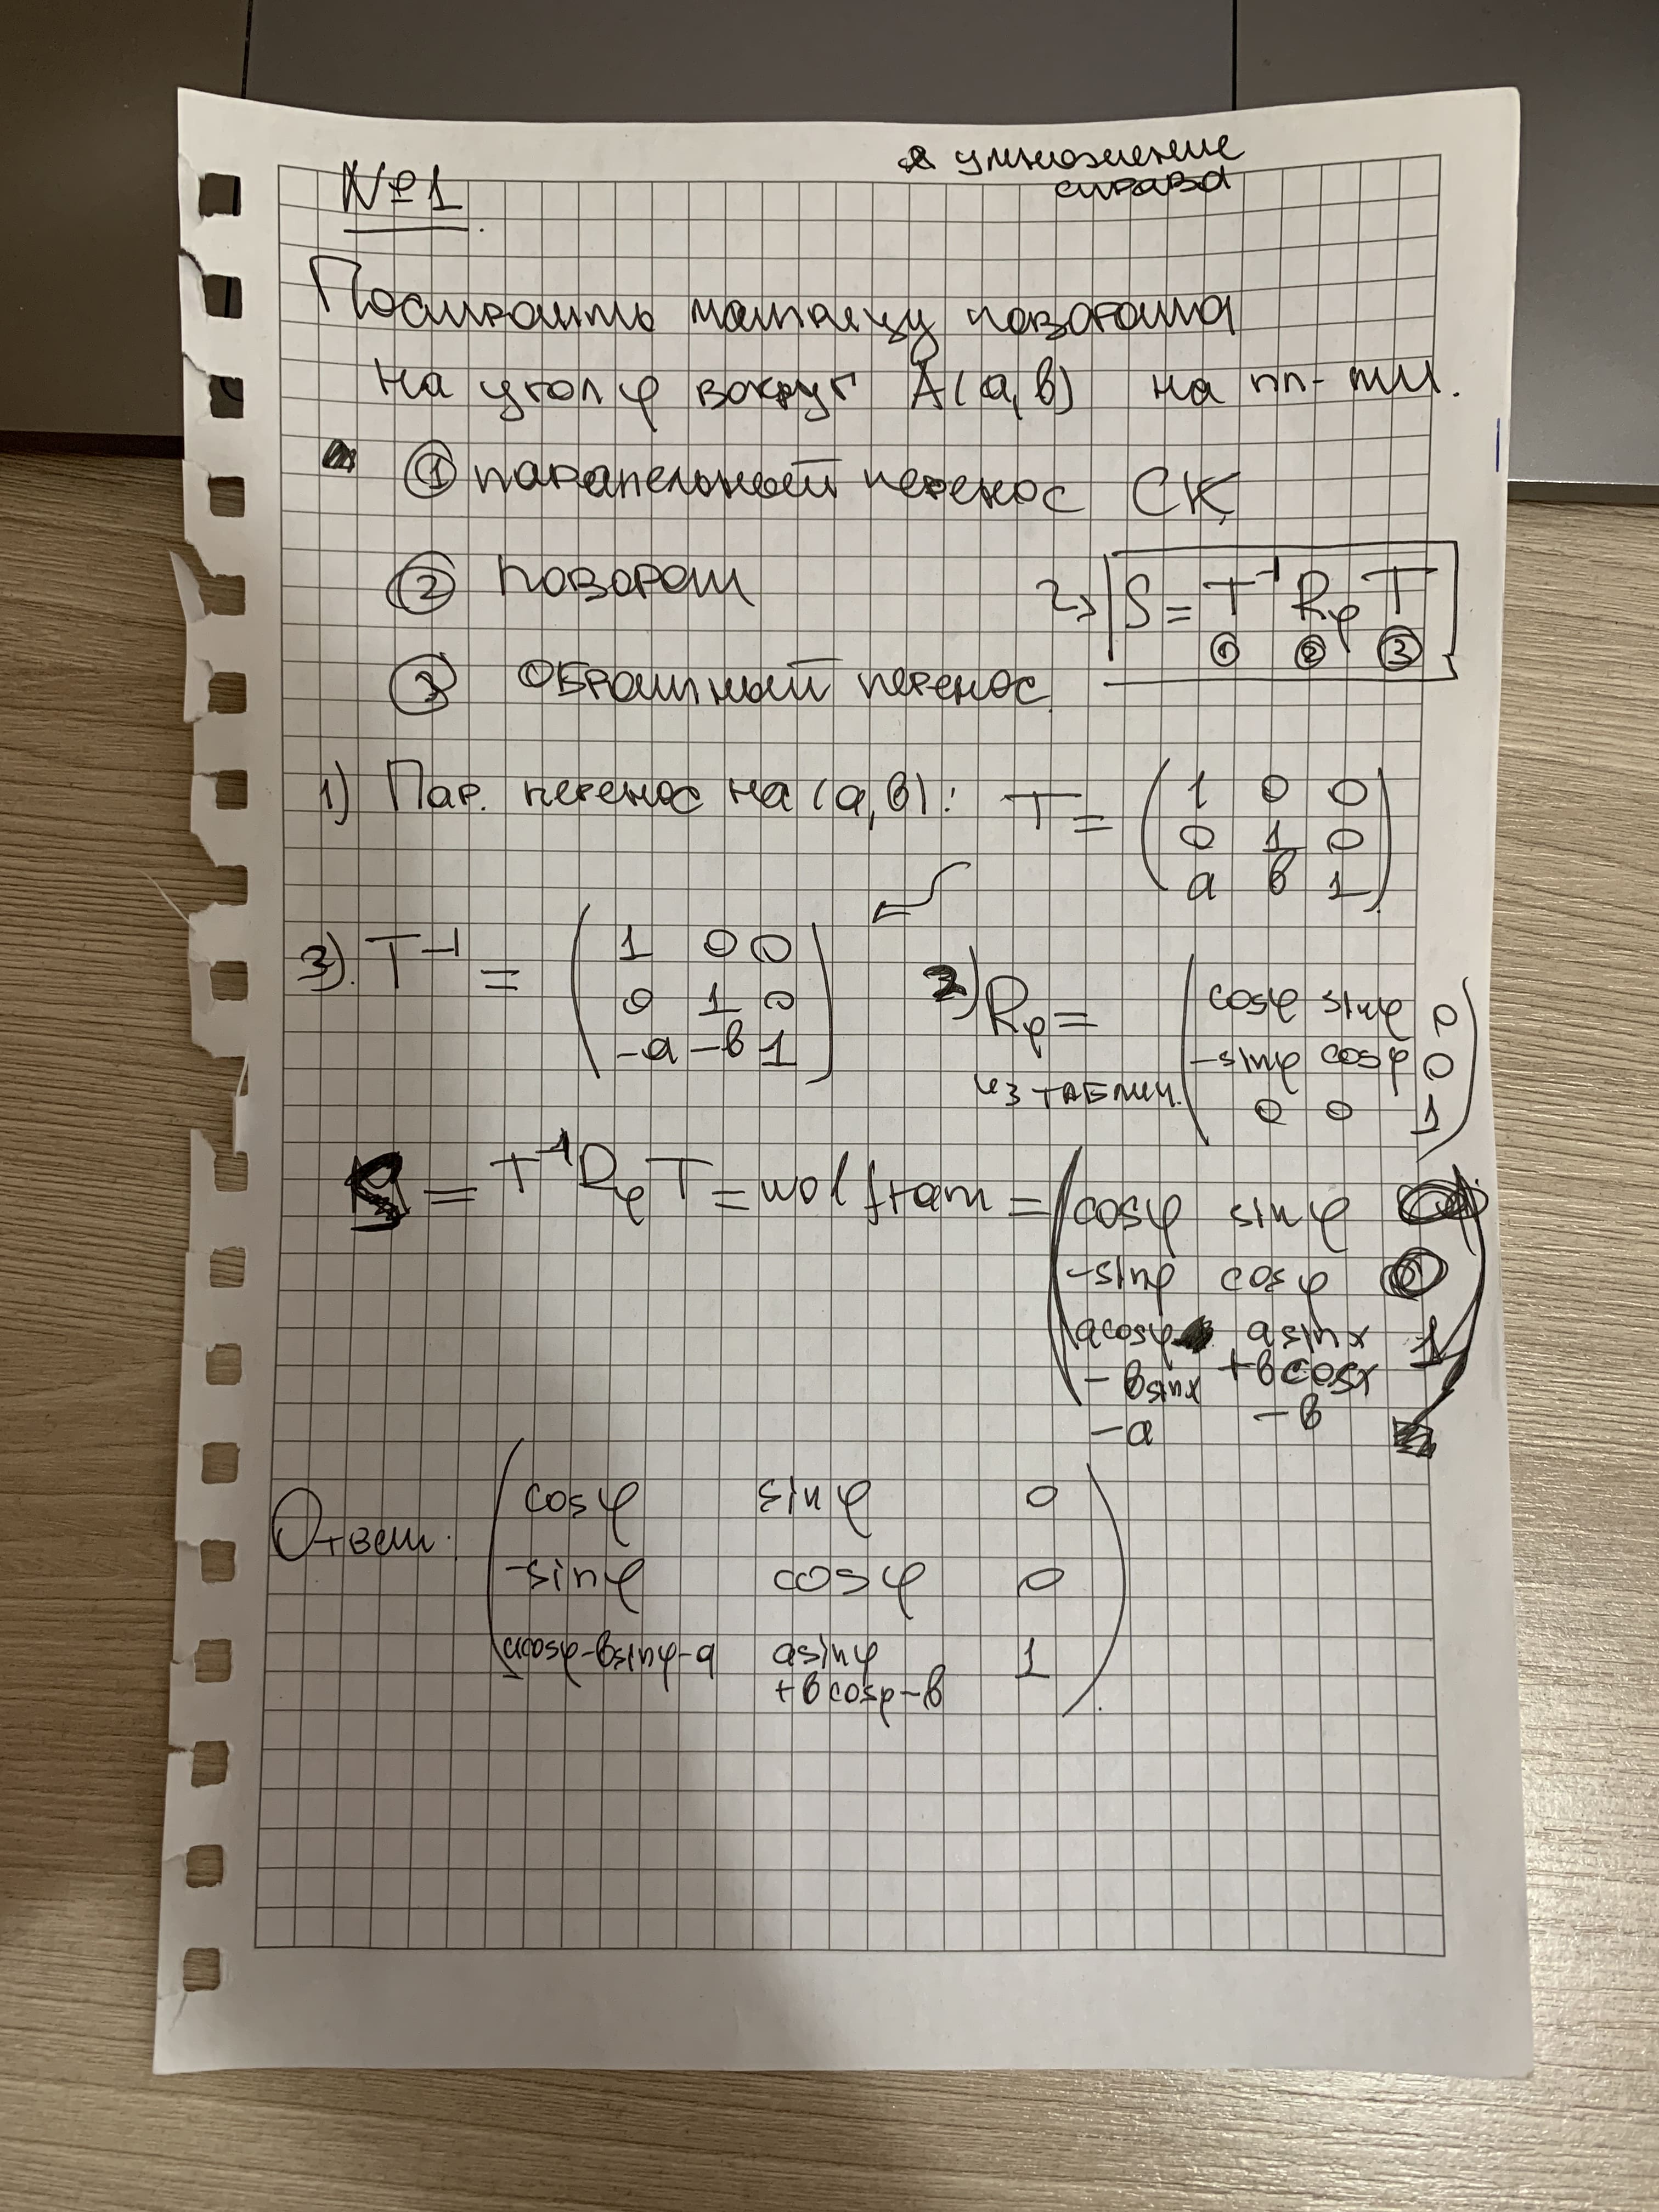 №1.
умножение
справа
Построить матрицу поворота
на угол φ вокруг A(a,b) на пл-ти.
① параллельный перенос СК
② поворот
S = T⁻¹ Rφ T
① ② ③
③ обратный перенос.
1) Пар. перенос на (a,b): T = ( 1 0 0
0 1 0
a b 1 )
3). T⁻¹ = ( 1 0 0
0 1 0
-a -b 1 )
2) Rφ = ( cosφ sinφ 0
-sinφ cosφ 0
0 0 1 )
из таблич.
S = T⁻¹ Rφ T = wolfram = ( cosφ sinφ 0
-sinφ cosφ 0
acosφ asinx 1
- bsinx +bcosx
-a -b )
Ответ: ( cosφ sinφ 0
-sinφ cosφ 0
acosφ-bsinφ-a asinφ 1
+bcosφ-b )